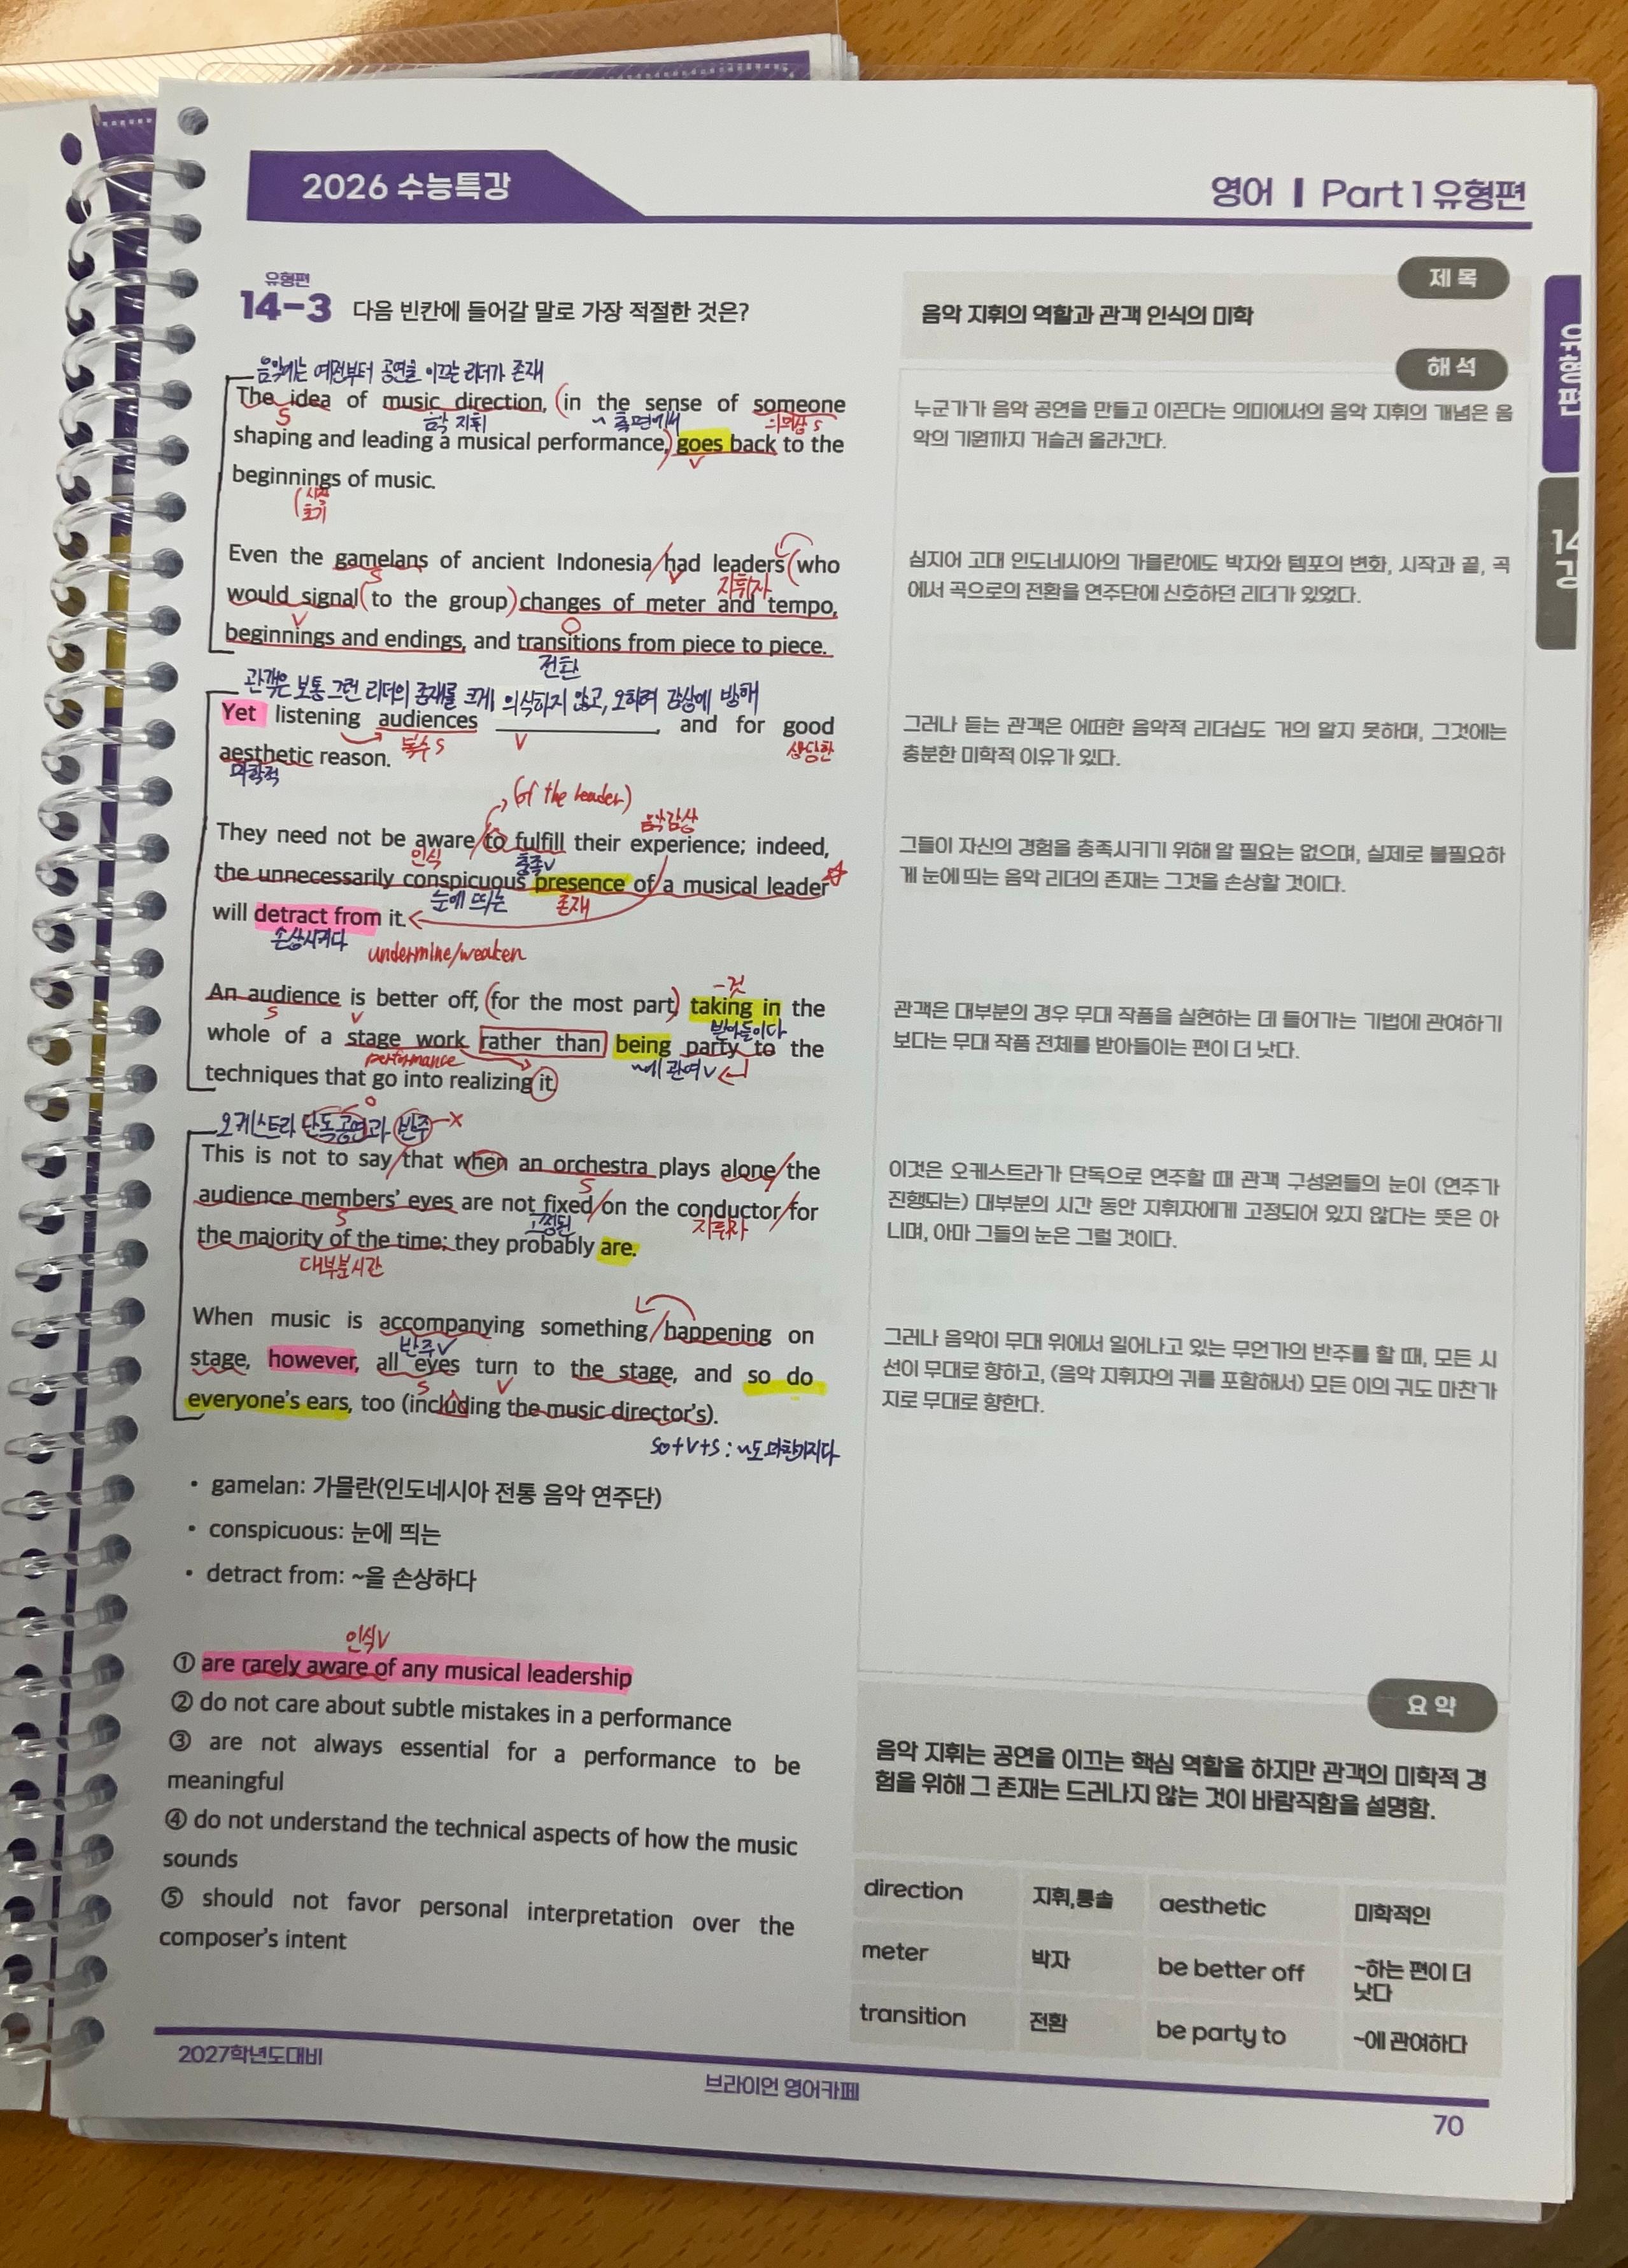 2026 수능특강
영어 | Part 1 유형편
유형편
14-3 다음 빈칸에 들어갈 말로 가장 적절한 것은?
음악에는 예전부터 공연을 이끄는 리더가 존재
The idea of music direction, (in the sense of someone
S 음악 지휘 ~측면에서 의미상 S
shaping and leading a musical performance,) goes back to the
V
beginnings of music.
(시작
초기
Even the gamelans of ancient Indonesia / had leaders (who
S V 지휘자
would signal (to the group) changes of meter and tempo,
V O
beginnings and endings, and transitions from piece to piece.
전환
관객은 보통 그런 리더의 존재를 크게 의식하지 않고, 오히려 감상에 방해
Yet listening audiences ____________, and for good
복수 S V 상당한
aesthetic reason.
미학적
(of the leader)
음악감상
They need not be aware / to fulfill their experience; indeed,
인식 충족V
the unnecessarily conspicuous presence of a musical leader
눈에 띄는 존재
will detract from it.
손상시키다 undermine/weaken
-것
An audience is better off, (for the most part) taking in the
S V 받아들이다
whole of a stage work rather than being party to the
performance ~에 관여V
techniques that go into realizing it.
오케스트라 단독공연과 반주
O X
This is not to say / that when an orchestra plays alone / the
S
audience members' eyes are not fixed / on the conductor / for
S 고정된 지휘자
the majority of the time; they probably are.
대부분시간
When music is accompanying something / happening on
반주V
stage, however, all eyes turn to the stage, and so do
S V
everyone's ears, too (including the music director's).
so+V+S : ~도 마찬가지다
• gamelan: 가믈란(인도네시아 전통 음악 연주단)
• conspicuous: 눈에 띄는
• detract from: ~을 손상하다
인식V
① are rarely aware of any musical leadership
② do not care about subtle mistakes in a performance
③ are not always essential for a performance to be
meaningful
④ do not understand the technical aspects of how the music
sounds
⑤ should not favor personal interpretation over the
composer's intent
제목
음악 지휘의 역할과 관객 인식의 미학
해석
누군가가 음악 공연을 만들고 이끈다는 의미에서의 음악 지휘의 개념은 음
악의 기원까지 거슬러 올라간다.
심지어 고대 인도네시아의 가믈란에도 박자와 템포의 변화, 시작과 끝, 곡
에서 곡으로의 전환을 연주단에 신호하던 리더가 있었다.
그러나 듣는 관객은 어떠한 음악적 리더십도 거의 알지 못하며, 그것에는
충분한 미학적 이유가 있다.
그들이 자신의 경험을 충족시키기 위해 알 필요는 없으며, 실제로 불필요하
게 눈에 띄는 음악 리더의 존재는 그것을 손상할 것이다.
관객은 대부분의 경우 무대 작품을 실현하는 데 들어가는 기법에 관여하기
보다는 무대 작품 전체를 받아들이는 편이 더 낫다.
이것은 오케스트라가 단독으로 연주할 때 관객 구성원들의 눈이 (연주가
진행되는) 대부분의 시간 동안 지휘자에게 고정되어 있지 않다는 뜻은 아
니며, 아마 그들의 눈은 그럴 것이다.
그러나 음악이 무대 위에서 일어나고 있는 무언가의 반주를 할 때, 모든 시
선이 무대로 향하고, (음악 지휘자의 귀를 포함해서) 모든 이의 귀도 마찬가
지로 무대로 향한다.
요약
음악 지휘는 공연을 이끄는 핵심 역할을 하지만 관객의 미학적 경
험을 위해 그 존재는 드러나지 않는 것이 바람직함을 설명함.
direction 지휘,통솔 aesthetic 미학적인
meter 박자 be better off ~하는 편이 더
낫다
transition 전환 be party to ~에 관여하다
유형편
14
강
2027학년도대비
브라이언 영어카페
70